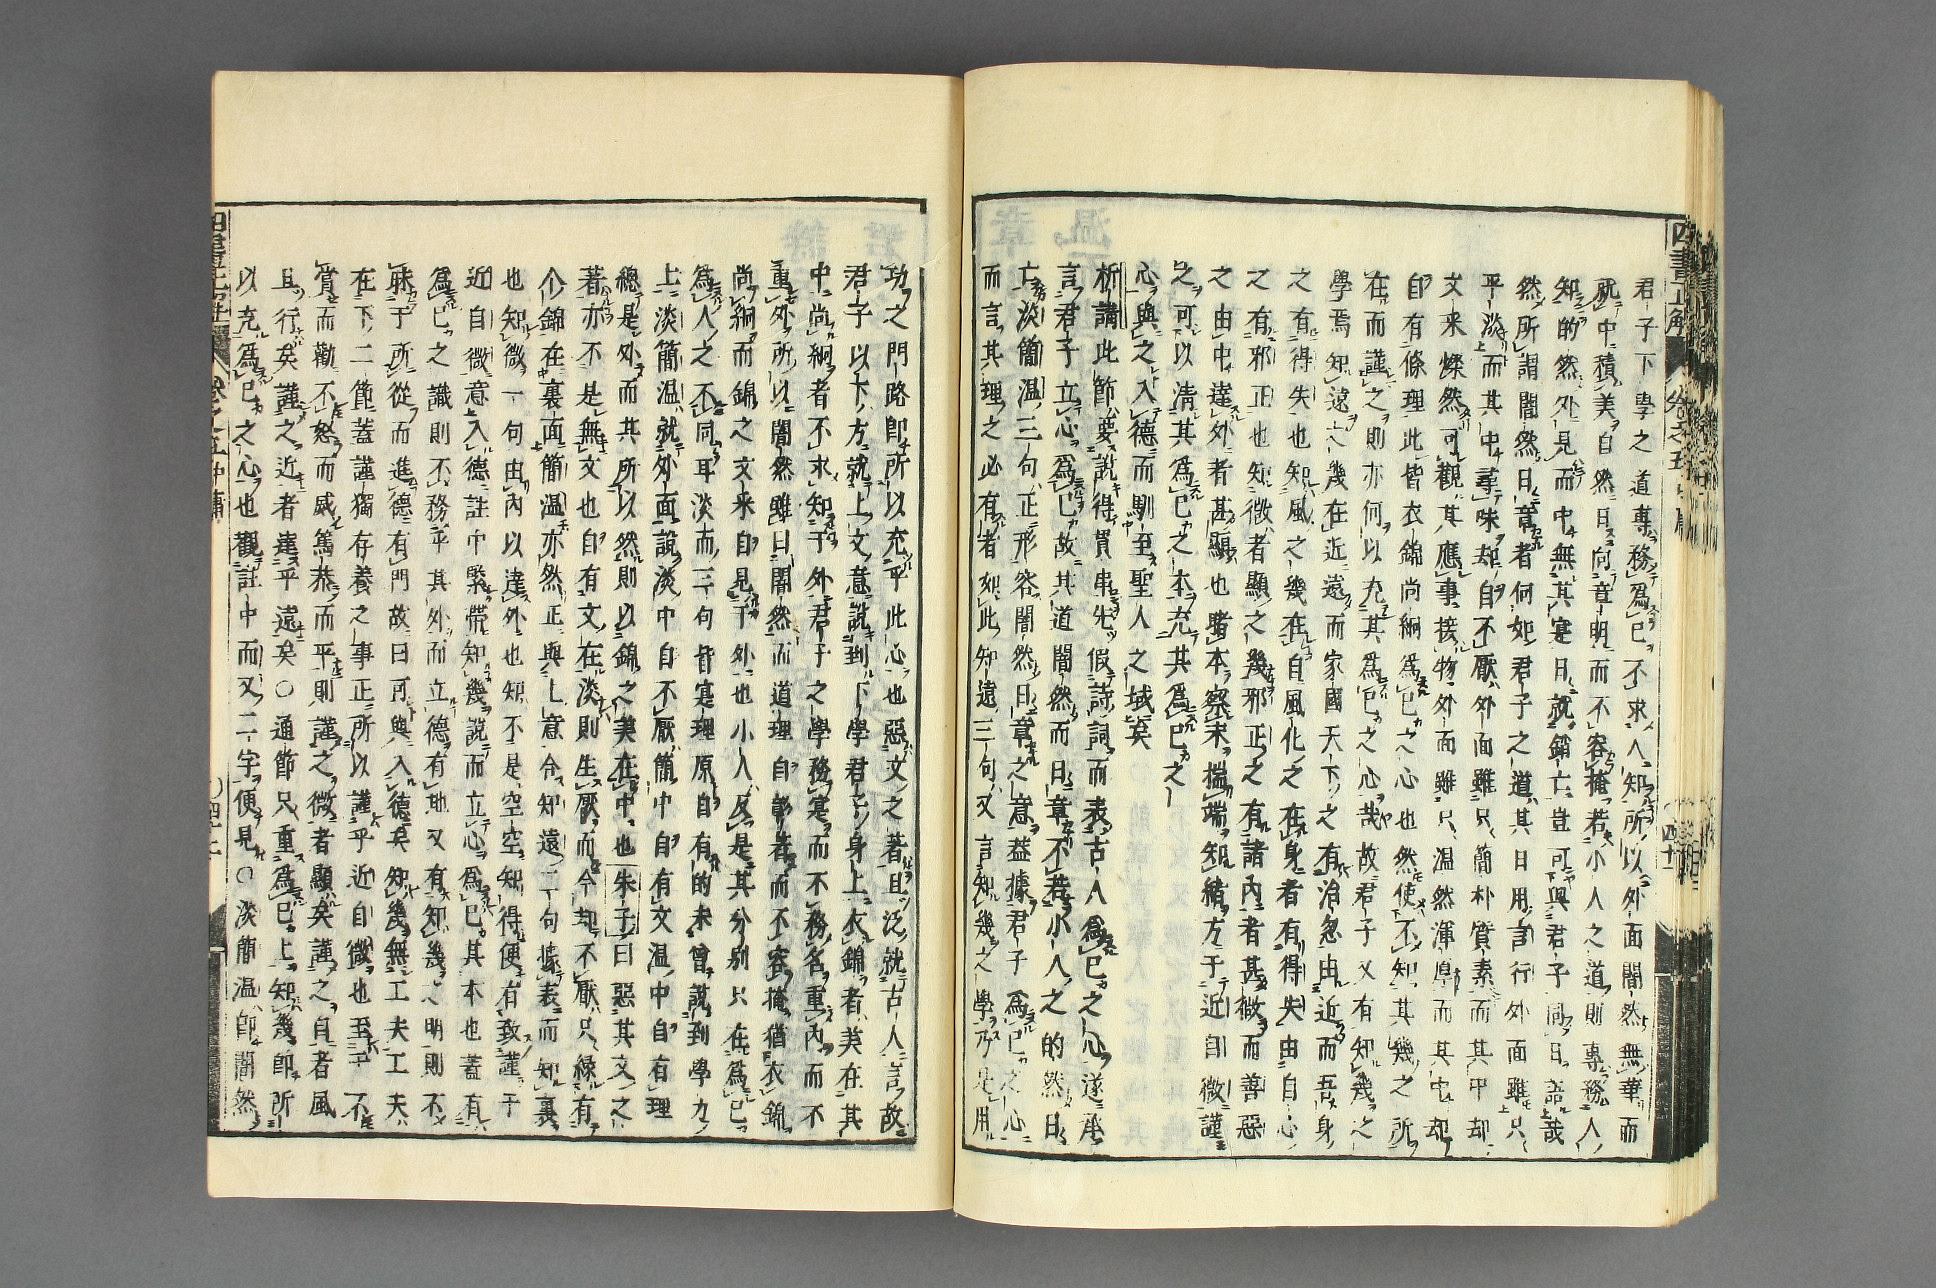 四書正解 卷之五 中庸 四十一
君子下學之道專務爲已不求人知所以外面闇然無華而
就中積美自然日向章明而不容掩若小人之道則專務人
知的然外見而中無其寔日就銷亡豈可與君子同日語哉
然所謂闇然日章者何如君子之道其日用言行外面雖只
平淡而其中尋味却自不厭外面雖只簡朴質素而其中却
文采燦然可觀其應事接物外面雖只温然渾厚而其中却
自有條理此皆衣錦尚絅爲已之心也然使不知其幾之所
在而謹之則亦何以充其爲已之心哉故君子又有知幾之
學焉知遠之幾在近遠而家國天下之有治忽由近而吾身
之有得失也知風之幾在自風化之在身者有得失由自心
之有邪正也知微者顯之幾邪正之有諸内者甚微而善惡
之由中達外者甚顯也睹本察末揣端知緒方于近自微謹
之可以清其爲已之本充其爲已之
心與之入德而馴至聖人之域矣
析講此節要說得貫串先假詩詞而表古人爲已之心遂承
言君子立心爲已故其道闇然而日章不若小人之的然日
亡淡簡温三句正形容闇然日章之意益據君子爲已之心
而言其理之必有者如此知遠三句又言知幾之學乃是用
功之門路卽所以充乎此心也惡文之著且泛就古人言故
君子以下方就上文意說到下學君子身上衣錦者美在其
中尚絅者不求知于外君子之學務寔而不務名重内而不
重外所以闇然雖曰闇然而道理自彰著而不容掩猶衣錦
尚絅而錦之文采自見于外也小人反是其分别只在爲已
爲人之不同耳淡而三句皆寔理原自有的未曾說到學力
上淡簡温就外面說淡中自不厭簡中自有文温中自有理
總是外而其所以然則以錦之美在中也朱子曰惡其文之
著亦不是無文也自有文在淡則生厭而今却不厭只緣有
个錦在裏面簡温亦然正與上意合知遠一句據表而知裏
也知微一句由內以達外也知不是空空知得便有致謹于
近自微意入德註中緊帶知幾說而立心爲已其本也蓋有
爲已之識則不務乎其外而立德有地又有知幾之明則不
昧于所從而進德有門故曰可與入德矣知幾無工夫工夫
在下二節蓋謹獨存養之事正所以謹乎近自微也至于不
賞而勸不怒而威篤恭而平則謹之微者顯矣謹之自者風
且行矣謹之近者達乎遠矣○通節只重爲已上知幾卽所
以充爲已之心也觀註中而又二字便見○淡簡温卽闇然